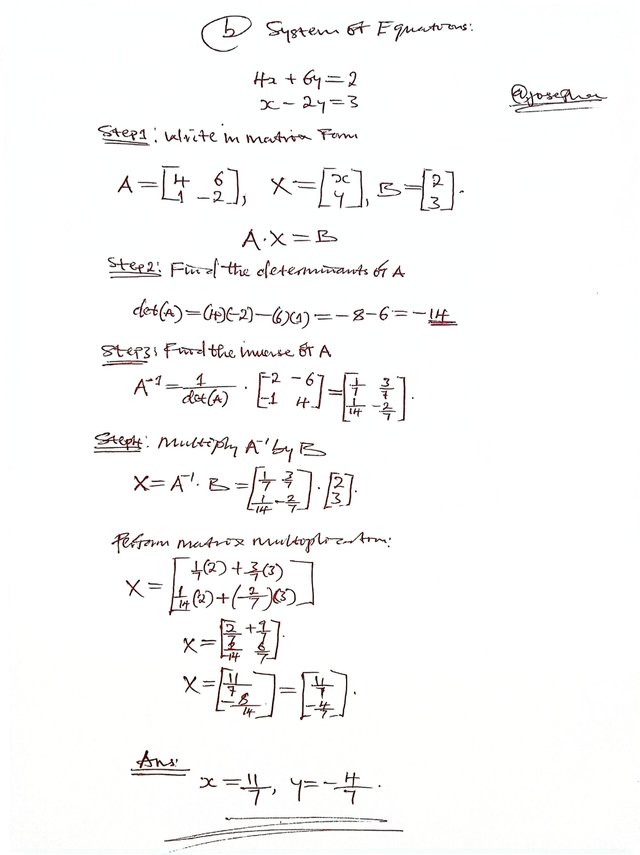 (b) System of Equations:
4x + 6y = 2
x - 2y = 3
@Josepha
Step1: Write in matrix Form
A = [4 6; 1 -2], X = [x; y], B = [2; 3].
A·X = B
Step2: Find the determinants of A
det(A) = (4)(-2) - (6)(1) = -8 - 6 = -14
Step3: Find the inverse of A
A⁻¹ = 1/det(A) · [-2 -6; -1 4] = [1/7 3/7; 1/14 -2/7].
Step4: Multiply A⁻¹ by B
X = A⁻¹ · B = [1/7 3/7; 1/14 -2/7] · [2; 3].
Perform matrix multiplication:
X = [1/7(2) + 3/7(3); 1/14(2) + (-2/7)(3)]
X = [2/7 + 9/7; 2/14 6/7].
X = [11/7; -8/14] = [11/7; -4/7].
Ans:
x = 11/7, y = -4/7.